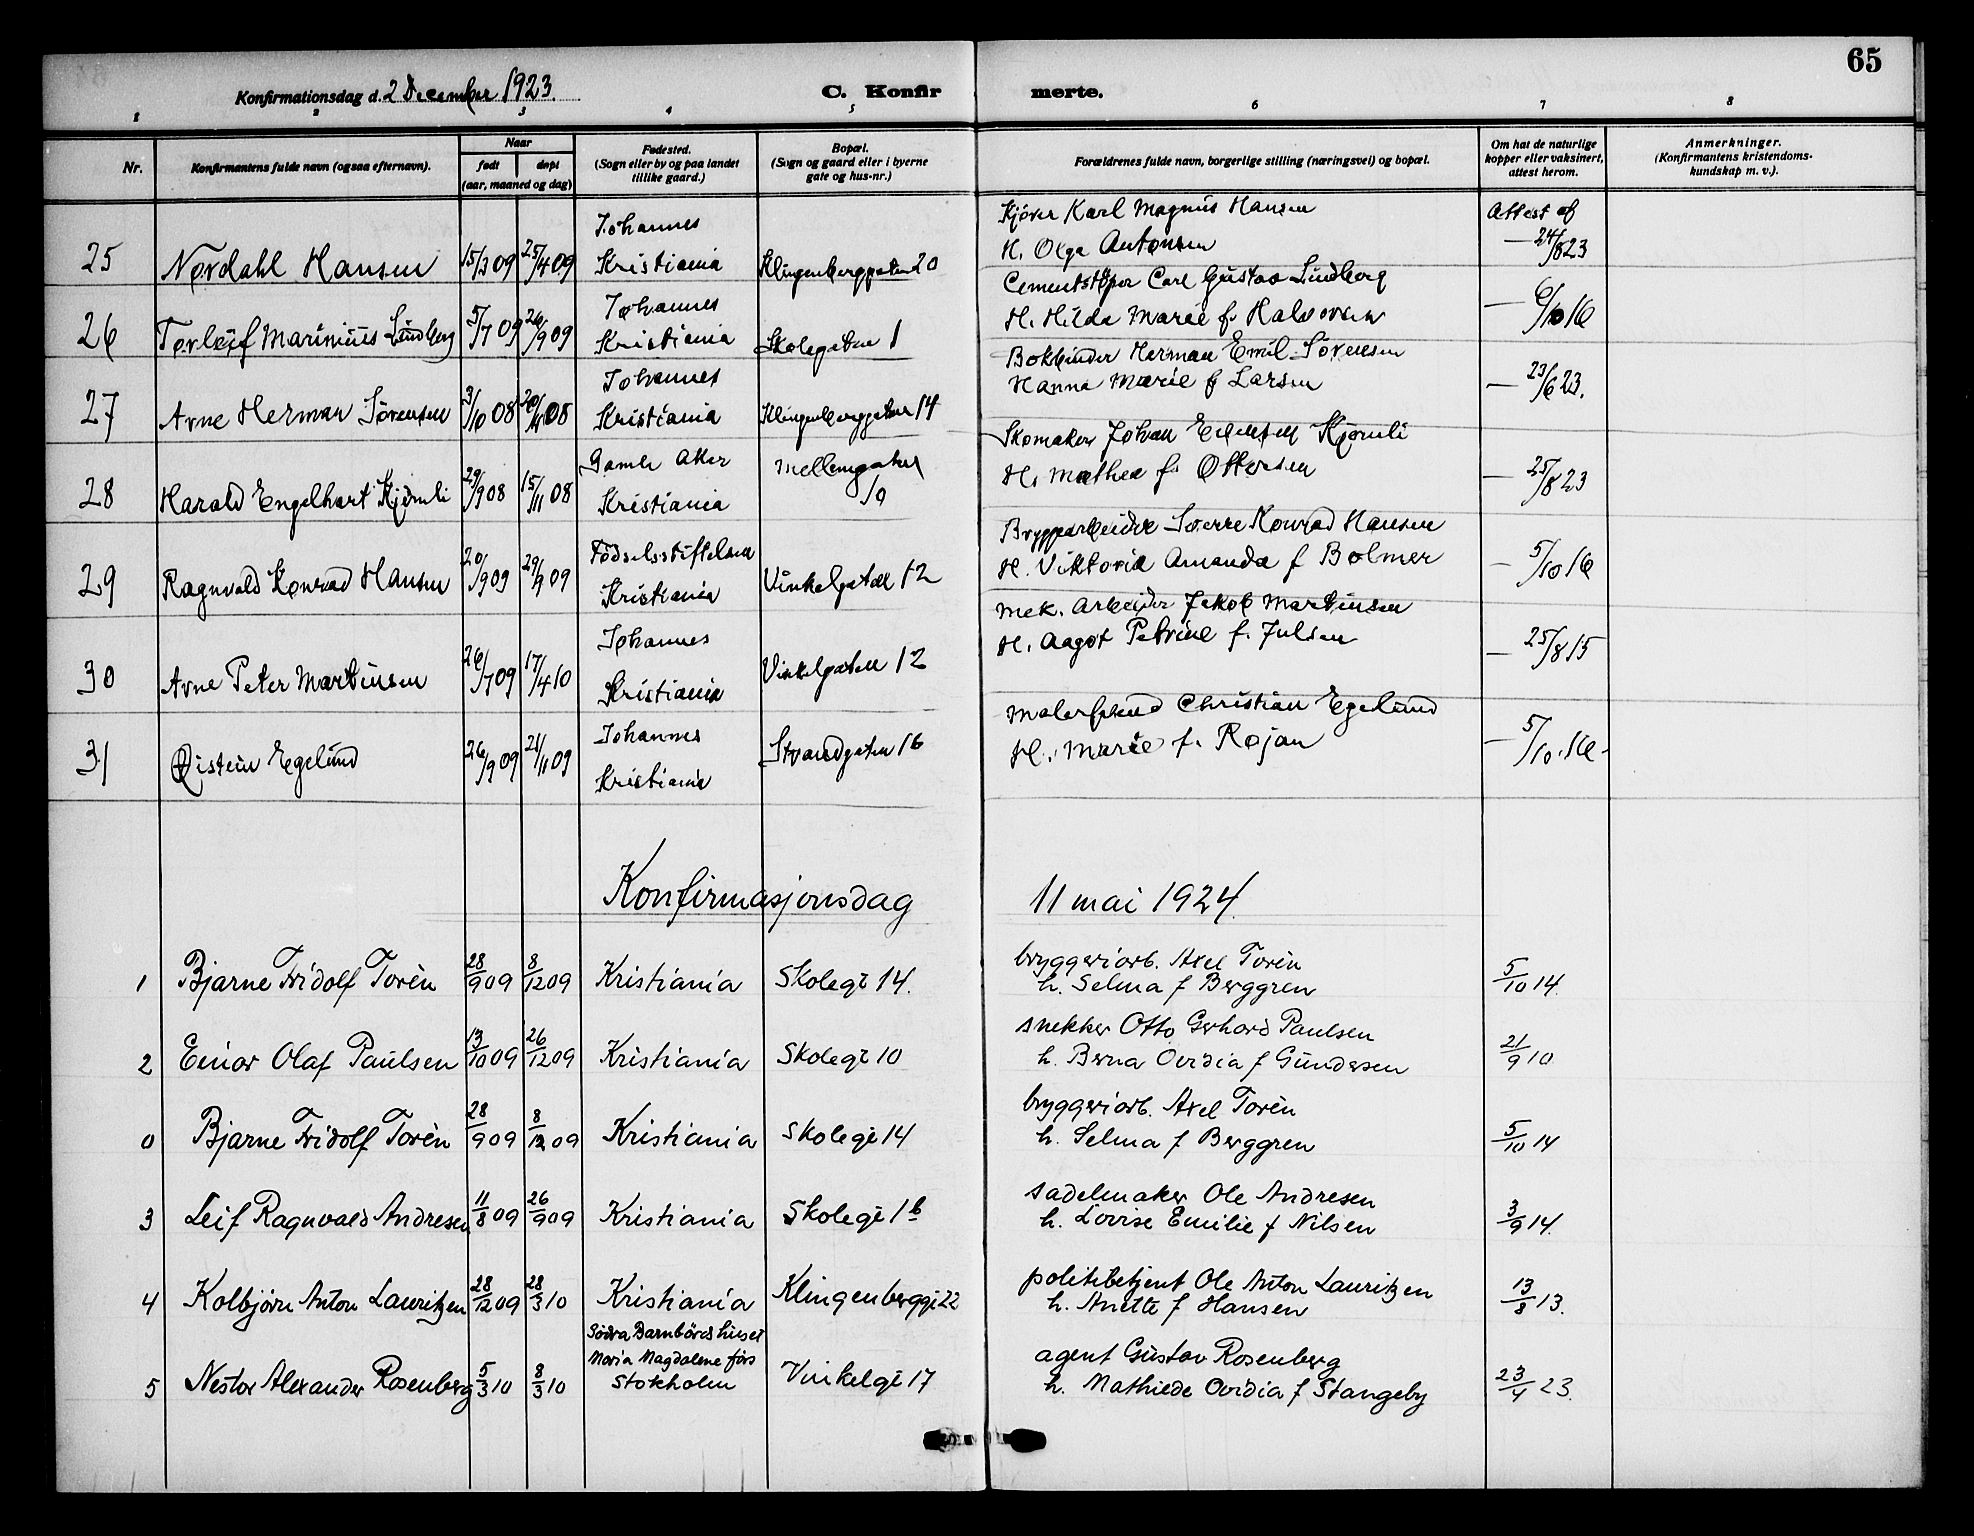 65
Konfirmationsdag d. 2 December 1923.
C. Konfirmerte.
1 2 3 4 5 6 7 8
Nr. Konfirmantens fulde navn (ogsaa efternavn). Naar født døpt (aar, maaned og dag) Fødested. (Sogn eller by og paa landet tillike gaard.) Bopæl. (Sogn og gaard eller i byerne gate og hus-nr.) Forældrenes fulde navn, borgerlige stilling (næringsvei) og bopæl. Om hat de naturlige kopper eller vaksinert, attest herom. Anmerkninger. (Konfirmantens kristendomskundskap m. v.).
Johannes Kjører Karl Magnus Hansen Attest af
25 Nordahl Hansen 15/3 09 25/4 09 Kristiania Klingenberggaten 20 H. Olga Antonsen — 24/8 23
Johannes Cementstøper Carl Gustav Lindberg
26 Torleif Marinius Lindberg 5/7 09 26/9 09 Kristiania Skolegaten 1 H. Hilda Marie f. Halvorsen — 6/10 16
Johannes Bokbinder Herman Emil Sørensen
27 Arne Herman Sørensen 3/10 08 Kristiania Klingenberggaten 14 Hanna Marie f Larsen — 23/6 23.
Gamle Aker Mellemgaten Skomaker Johan Kjømli
28 Harald Engelhart Kjømli 29/9 08 15/11 08 Kristiania 10 H. Mathea f. Ottersen — 25/8 23
Fødselsstiftelsen Bryggearbeider Sverre Konrad Hansen
29 Ragnvald Konrad Hansen 20/9 09 29/9 09 Kristiania Vinkelgaten 12 H. Viktoria Amanda f Bolmer — 5/10 16
Johannes Mek. Arbeider Jakob Martinsen
30 Arne Peter Martinsen 26/7 09 17/4 10 Kristiania Vinkelgaten 12 H. Aagot Petrine f. Julsen — 25/8 15
Johannes Malersvend Christian Egelund
31 Øistein Egelund 26/9 09 21/11 09 Kristiania Strandgaten 16 H. Marie f. Rojan — 5/10. 16.
Konfirmasjonsdag 11 mai 1924.
bryggeriarb. Axel Torèn
1 Bjarne Fridolf Torèn 28/9 09 8/12 09 Kristiania Skolegt 14. h. Selma f Berggren 5/10 14.
snekker Otto Gerhard Paulsen
2 Einar Olaf Paulsen 13/10 09 26/12 09 Kristiania Skolegt 10 h. Berna Ovidia f Gundersen 21/9 10
bryggeriarb. Axel Torèn
0 Bjarne Fridolf Torèn 28/9 09 8/12 09 Kristiania Skolegt 14 h. Selma f Berggren 5/10 14
sadelmaker Ole Andresen
3 Leif Ragnvald Andresen 11/8 09 26/9 09 Kristiania Skolegt 1b h. Lovise Emilie f Nilsen 3/9 14.
politibetjent Ole Anton Lauritzen
4 Kolbjørn Anton Lauritzen 28/12 09 28/3 10 Kristiania Klingenberggt 22 h. Anette f Hansen 13/8 13.
Södra Barnbördshuset
Maria Magdalene förs agent Gustav Rosenberg
5 Nestor Alexander Rosenberg 5/3 10 8/3 10 Stokholm Vinkelgt 17 h. Mathilde Ovidia f Stangeby 23/4 23.